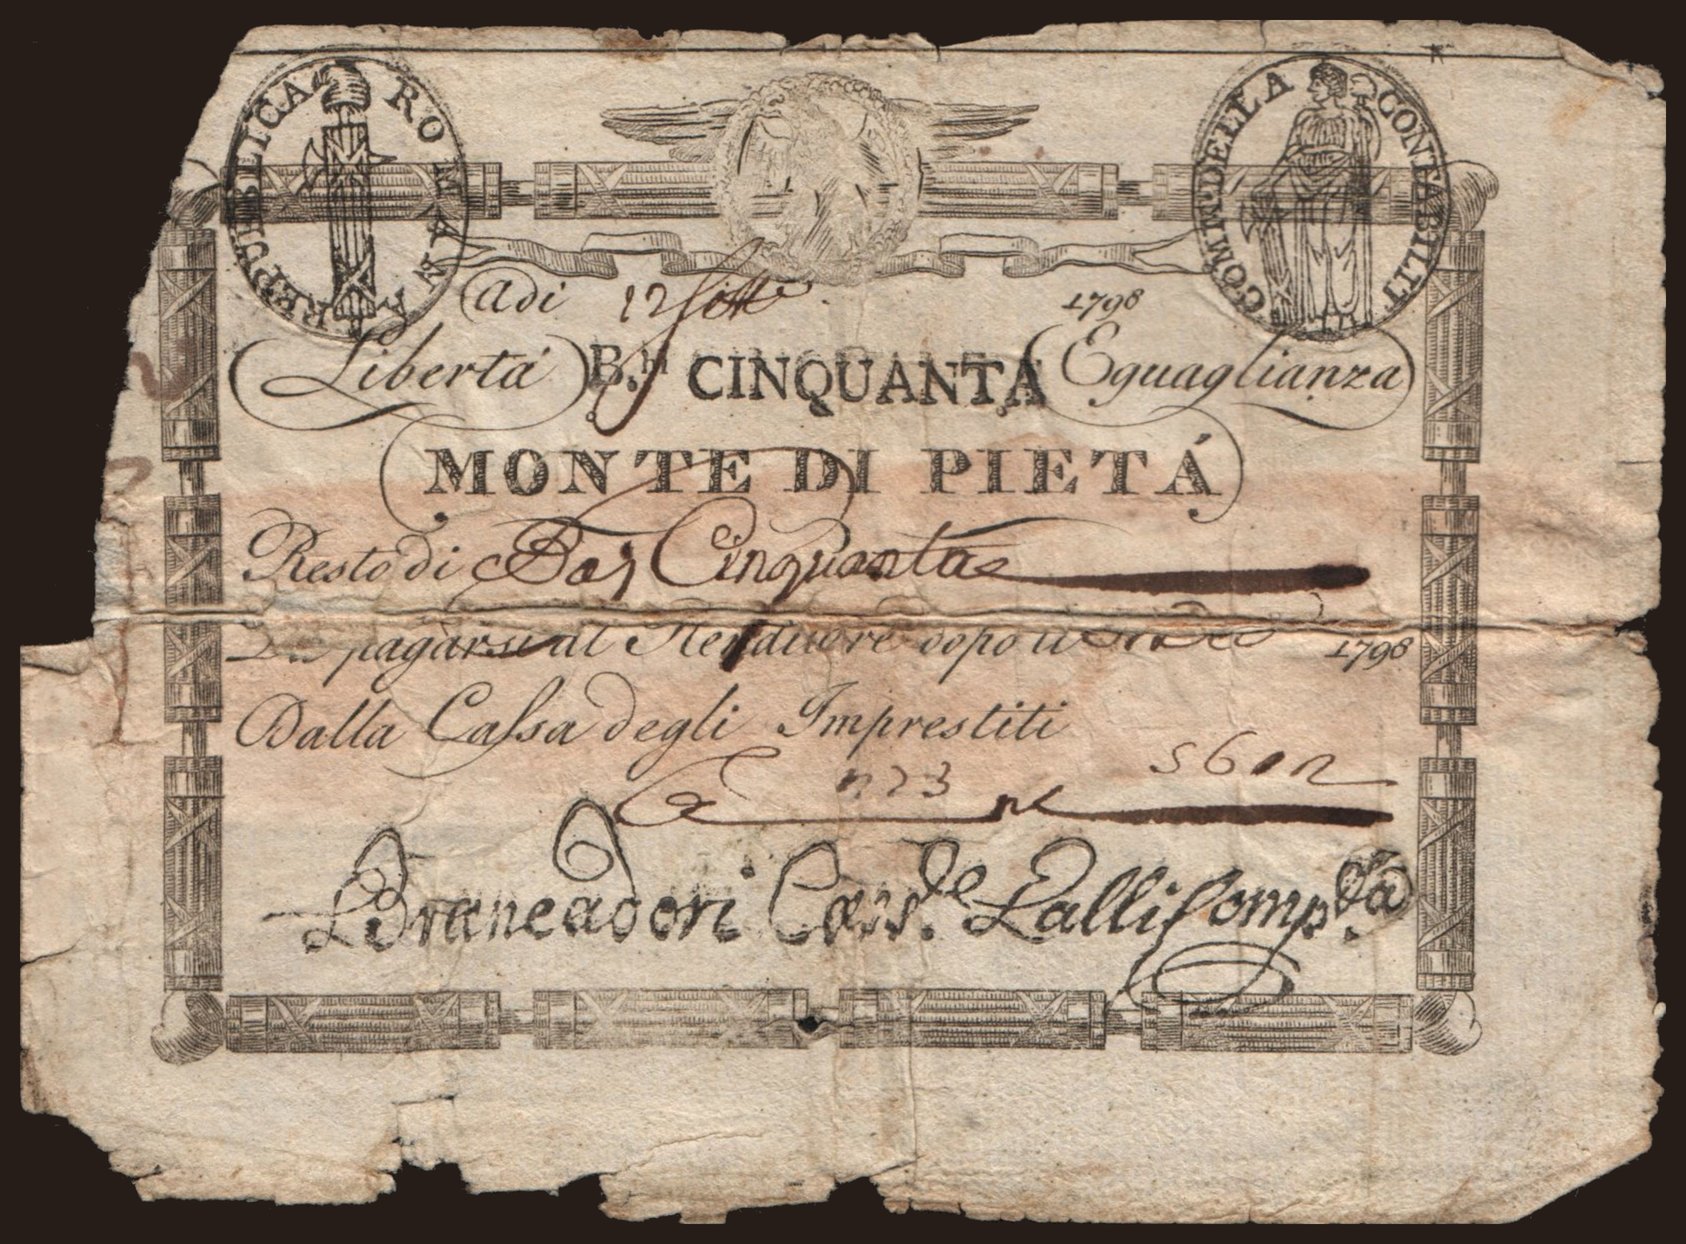 REPUBBLICA ROMANA
COMM. DELLA CONTABILIT
Adi 12 1798
Libertá B.H CINQUANTA Eguaglianza
MONTE DI PIETÁ
Resto di Baj Cinquanta
pagarsi al dopo 1798
Dalla Cassa degli Imprestiti
Brancadori Lalli Comp.